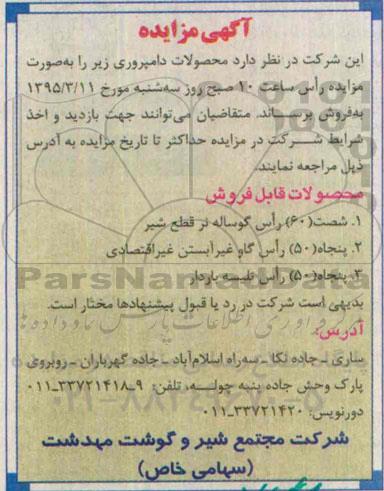 آگهی مزایده
این شرکت در نظر دارد محصولات دامپروری زیر را به‌صورت
مزایده رأس ساعت ۱۰ صبح روز سه‌شنبه مورخ ۱۳۹۵/۳/۱۱
به‌فروش برساند. متقاضیان می‌توانند جهت بازدید و اخذ
شرایط شرکت در مزایده حداکثر تا تاریخ مزایده به آدرس
ذیل مراجعه نمایند.
محصولات قابل فروش
۱. شصت(۶۰) رأس گوساله نر قطع شیر
۲. پنجاه(۵۰) رأس گاو غیرآبستن غیراقتصادی
۳. پنجاه(۵۰) رأس تلیسه باردار
ParsNamadData
بدیهی است شرکت در رد یا قبول پیشنهادها مختار است.
آدرس:
ساری ـ جاده نکا ـ سه‌راه اسلام‌آباد ـ جاده گهرباران ـ روبروی
پارک وحش جاده پنبه چوله، تلفن: ۹ـ۳۳۷۲۱۴۱۸ـ۰۱۱
دورنویس: ۳۳۷۲۱۴۲۰ـ۰۱۱
۰۲۱-۸۸۳۴۹۶۷۰-۵
شرکت مجتمع شیر و گوشت مهدشت
(سهامی خاص)